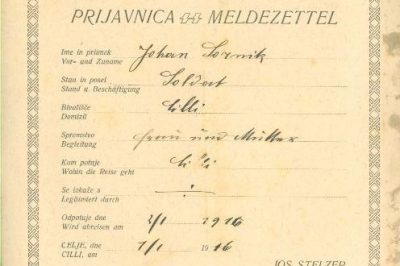 PRIJAVNICA MELDEZETTEL
Ime in priimek
Vor- und Zuname
Johan
Stan in posel
Stand u. Beschäftigung
Soldat
Bivališče
Domizil
Cilli
Spremstvo
Begleitung
Frau und Mutter
Kam potuje
Wohin die Reise geht
Cilli
Se izkaže s
Legitimiert durch
Odpotuje dne
Wird abreisen am
1916
CELJE, dne
CILLI, am
1/1 1916
JOS. STELZER